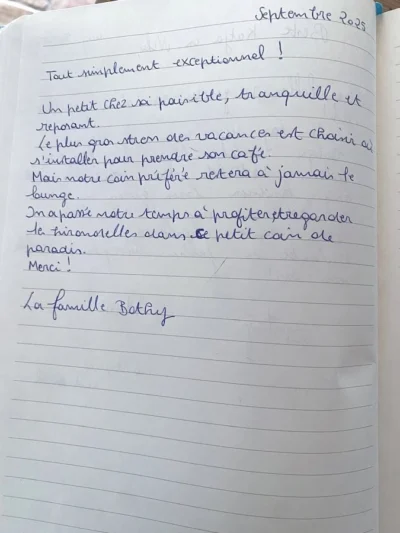 Septembre 2025
Tout simplement exceptionnel !
Un petit chez soi paisible, tranquille et
reposant.
Le plus gros stress des vacances est choisir où
s'installer pour prendre son café.
Mais notre coin préféré restera à jamais le
lounge.
On a passé notre temps à profiter et regarder
le hirondelles dans ce petit coin de
paradis.
Merci !
La famille Bothy